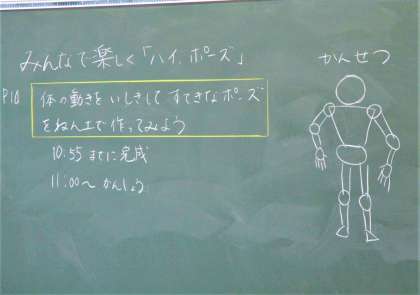 みんなで楽しく「ハイ、ポーズ」
かんせつ
P18
体の動きをいしきして すてきなポーズ
をねん土で作ってみよう
10:55 までに完成
11:00〜 かんしょう